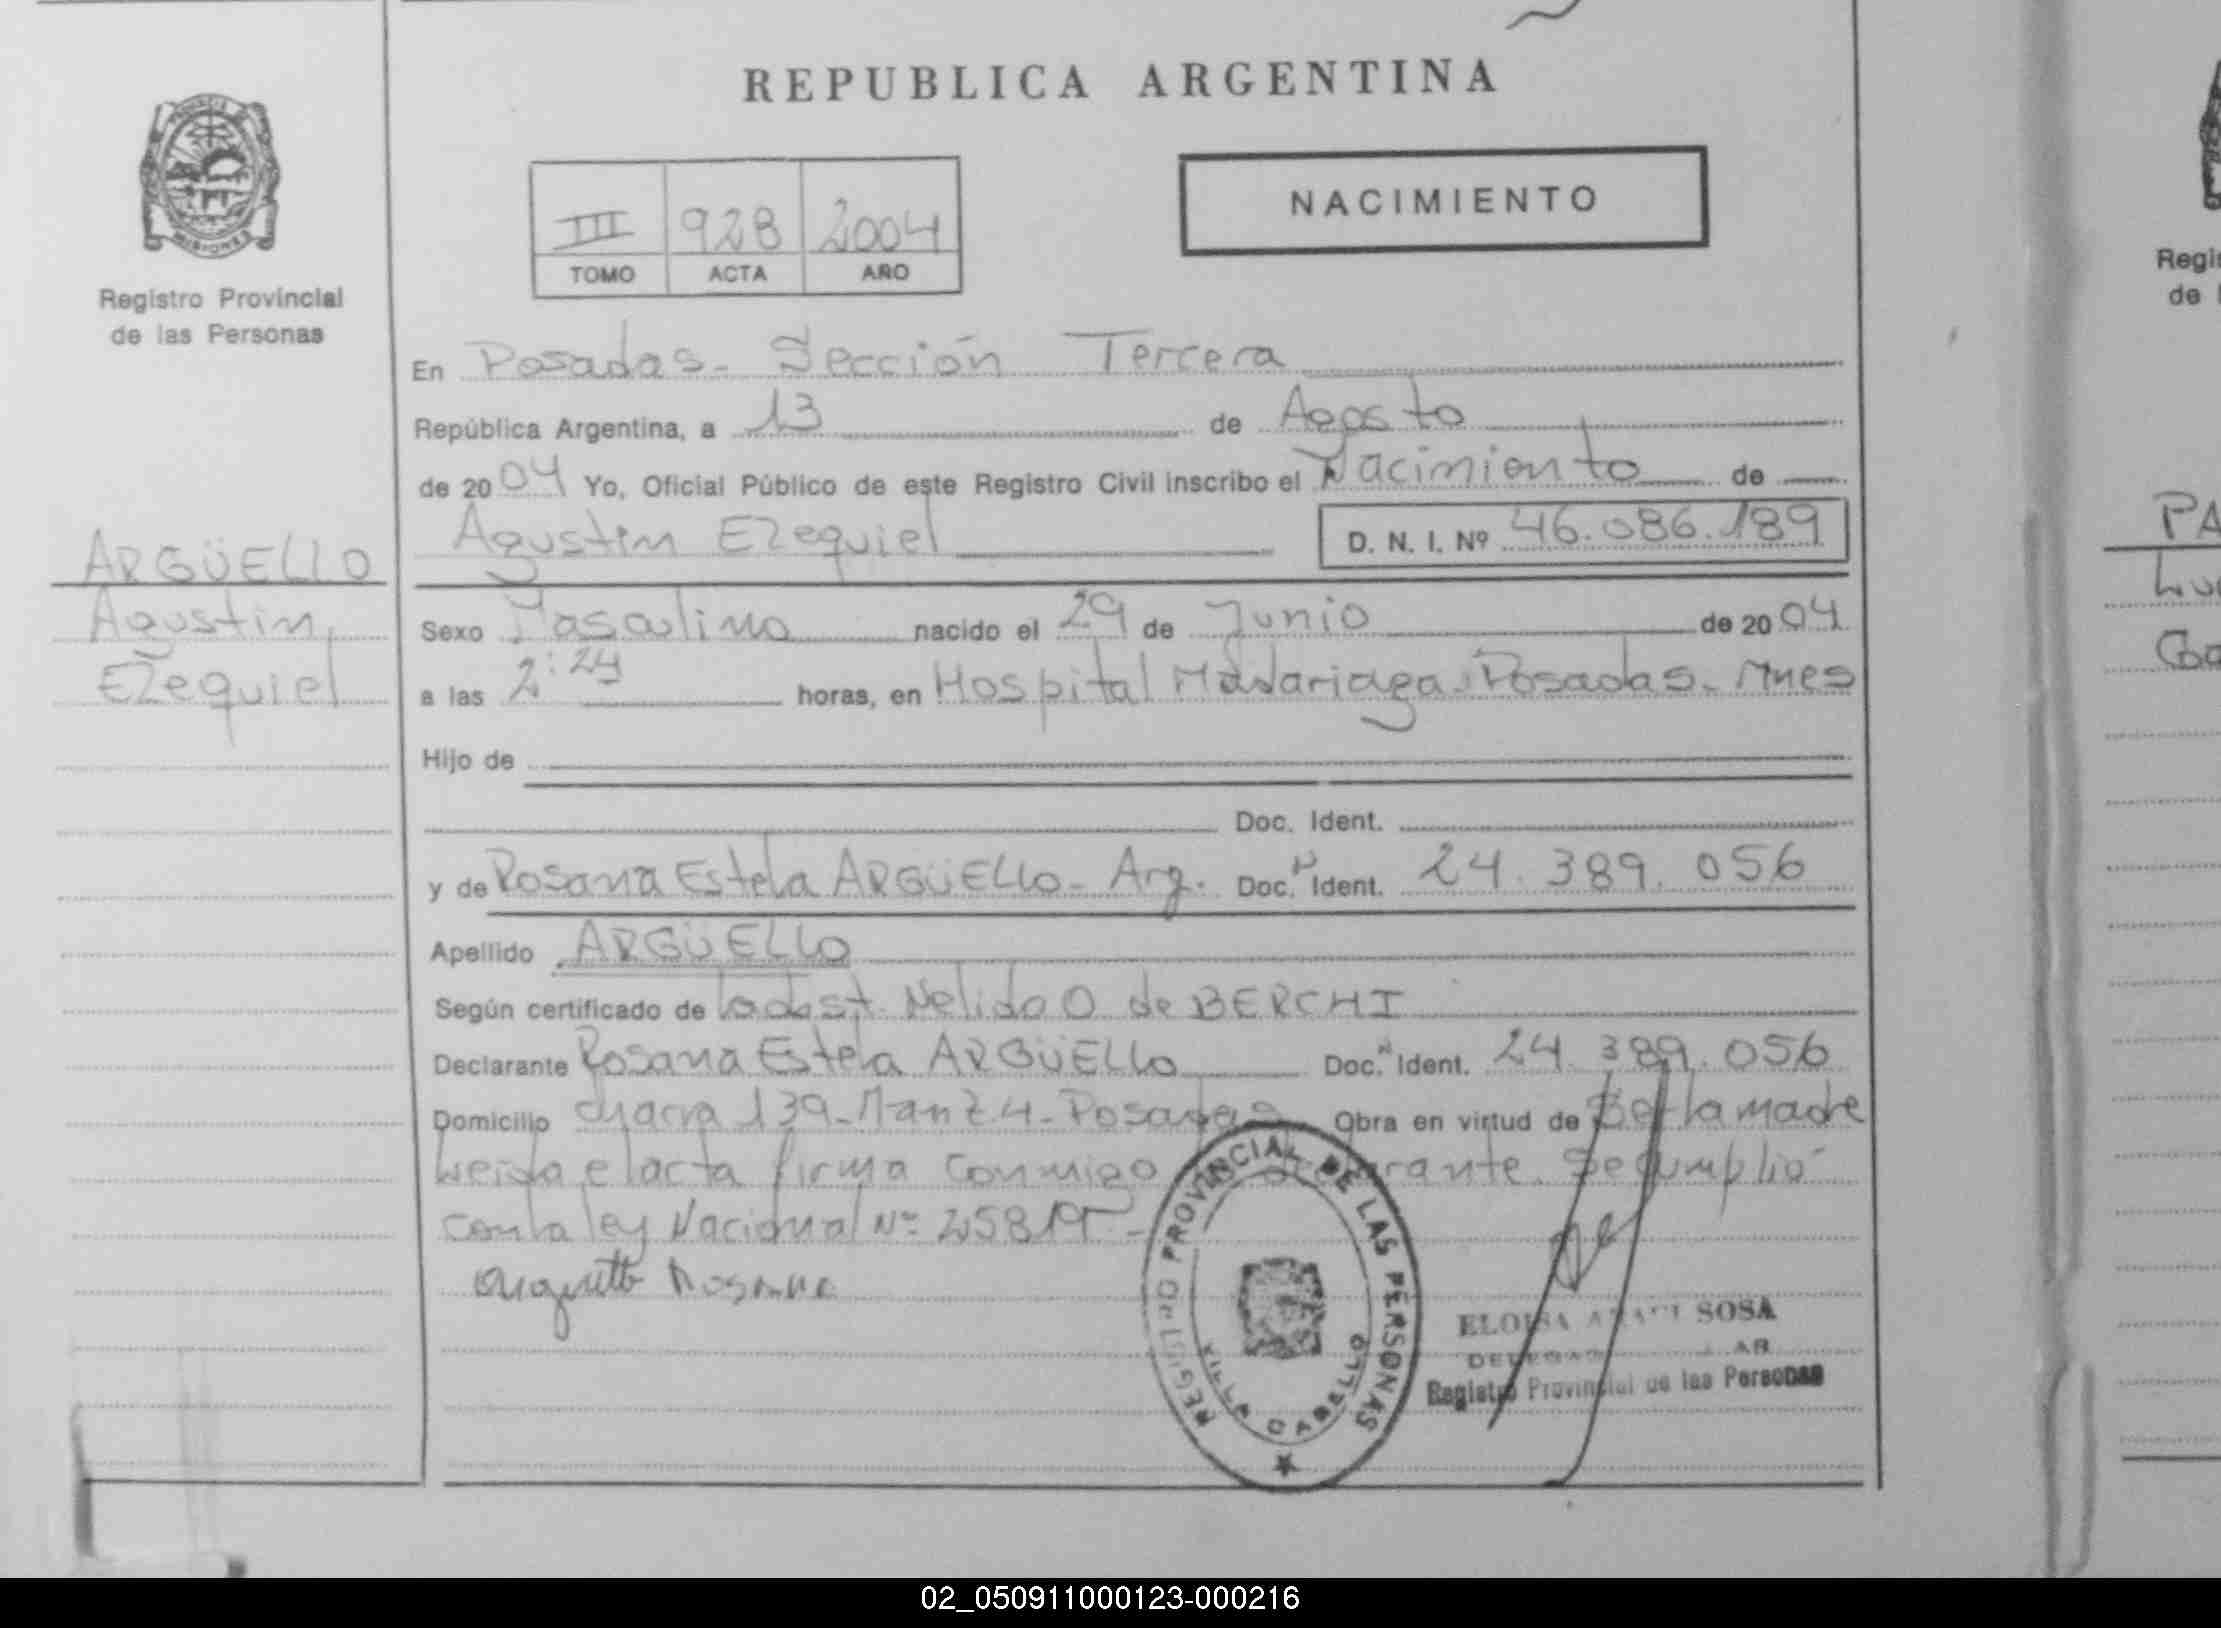 REPUBLICA ARGENTINA
MISIONES
Registro Provincial
de las Personas
III 928 2004
TOMO ACTA AÑO
NACIMIENTO
En Posadas - Sección Tercera
República Argentina, a 13 de Agosto
de 2004 Yo, Oficial Público de este Registro Civil inscribo el Nacimiento de
Agustin Ezequiel D. N. I. Nº 46.086.189
ARGÜELLO
Agustin
Ezequiel
Sexo Masculino nacido el 29 de Junio de 2004
a las 2:24 horas, en Hospital Madariaga. Posadas - Mnes
Hijo de
Doc. Ident.
y de Rosana Estela ARGÜELLO - Arg. Doc. Ident. 24.389.056
Apellido ARGÜELLO
Según certificado de la obst. Nelida O de BERCHI
Declarante Rosana Estela ARGÜELLO Doc. Ident. 24.389.056
Domicilio Chacra 139 - Manz. 4 - Posadas Obra en virtud de Ser la madre
Leida el acta firma conmigo declarante. Se cumplió
con la ley Nacional Nº
Rosana
REGISTRO PROVINCIAL DE LAS PERSONAS
VILLA CABELLO
ELOISA SOSA
Registro Provincial de las Personas
Regis
de l
PA
Lu
Ga
02_050911000123-000216